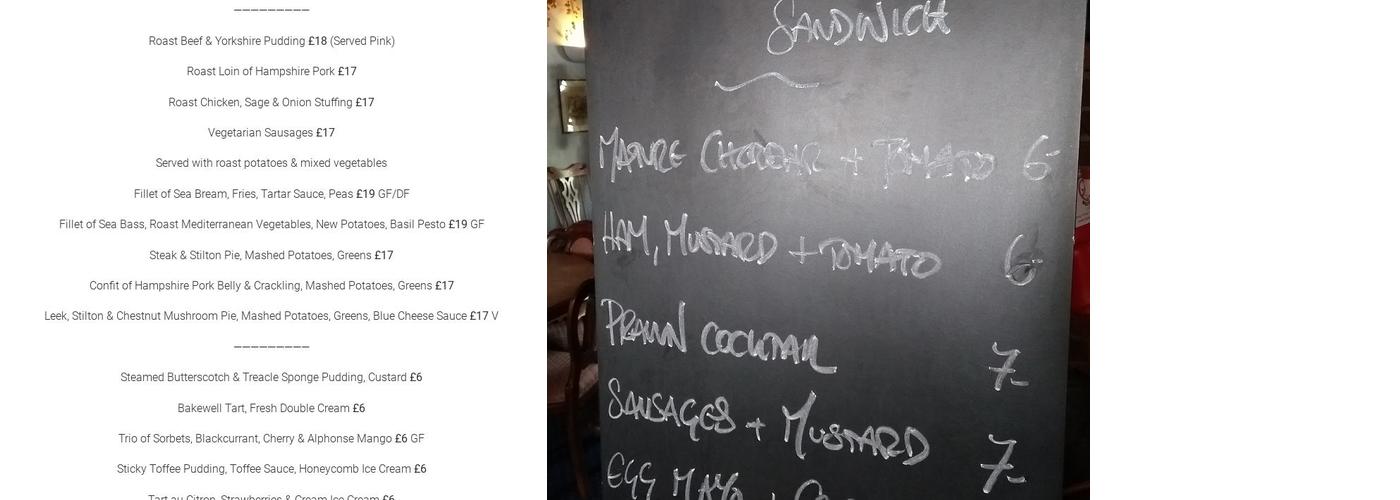 _________
Roast Beef & Yorkshire Pudding £18 (Served Pink)
Roast Loin of Hampshire Pork £17
Roast Chicken, Sage & Onion Stuffing £17
Vegetarian Sausages £17
Served with roast potatoes & mixed vegetables
Fillet of Sea Bream, Fries, Tartar Sauce, Peas £19 GF/DF
Fillet of Sea Bass, Roast Mediterranean Vegetables, New Potatoes, Basil Pesto £19 GF
Steak & Stilton Pie, Mashed Potatoes, Greens £17
Confit of Hampshire Pork Belly & Crackling, Mashed Potatoes, Greens £17
Leek, Stilton & Chestnut Mushroom Pie, Mashed Potatoes, Greens, Blue Cheese Sauce £17 V
_________
Steamed Butterscotch & Treacle Sponge Pudding, Custard £6
Bakewell Tart, Fresh Double Cream £6
Trio of Sorbets, Blackcurrant, Cherry & Alphonse Mango £6 GF
Sticky Toffee Pudding, Toffee Sauce, Honeycomb Ice Cream £6
Tart au Citron, Strawberries & Cream Ice Cream £6
SANDWICH
MATURE CHEDDAR + TOMATO 6-
HAM, MUSTARD + TOMATO 6-
PRAWN COCKTAIL 7-
SAUSAGES + MUSTARD 7-
EGG MAYO +